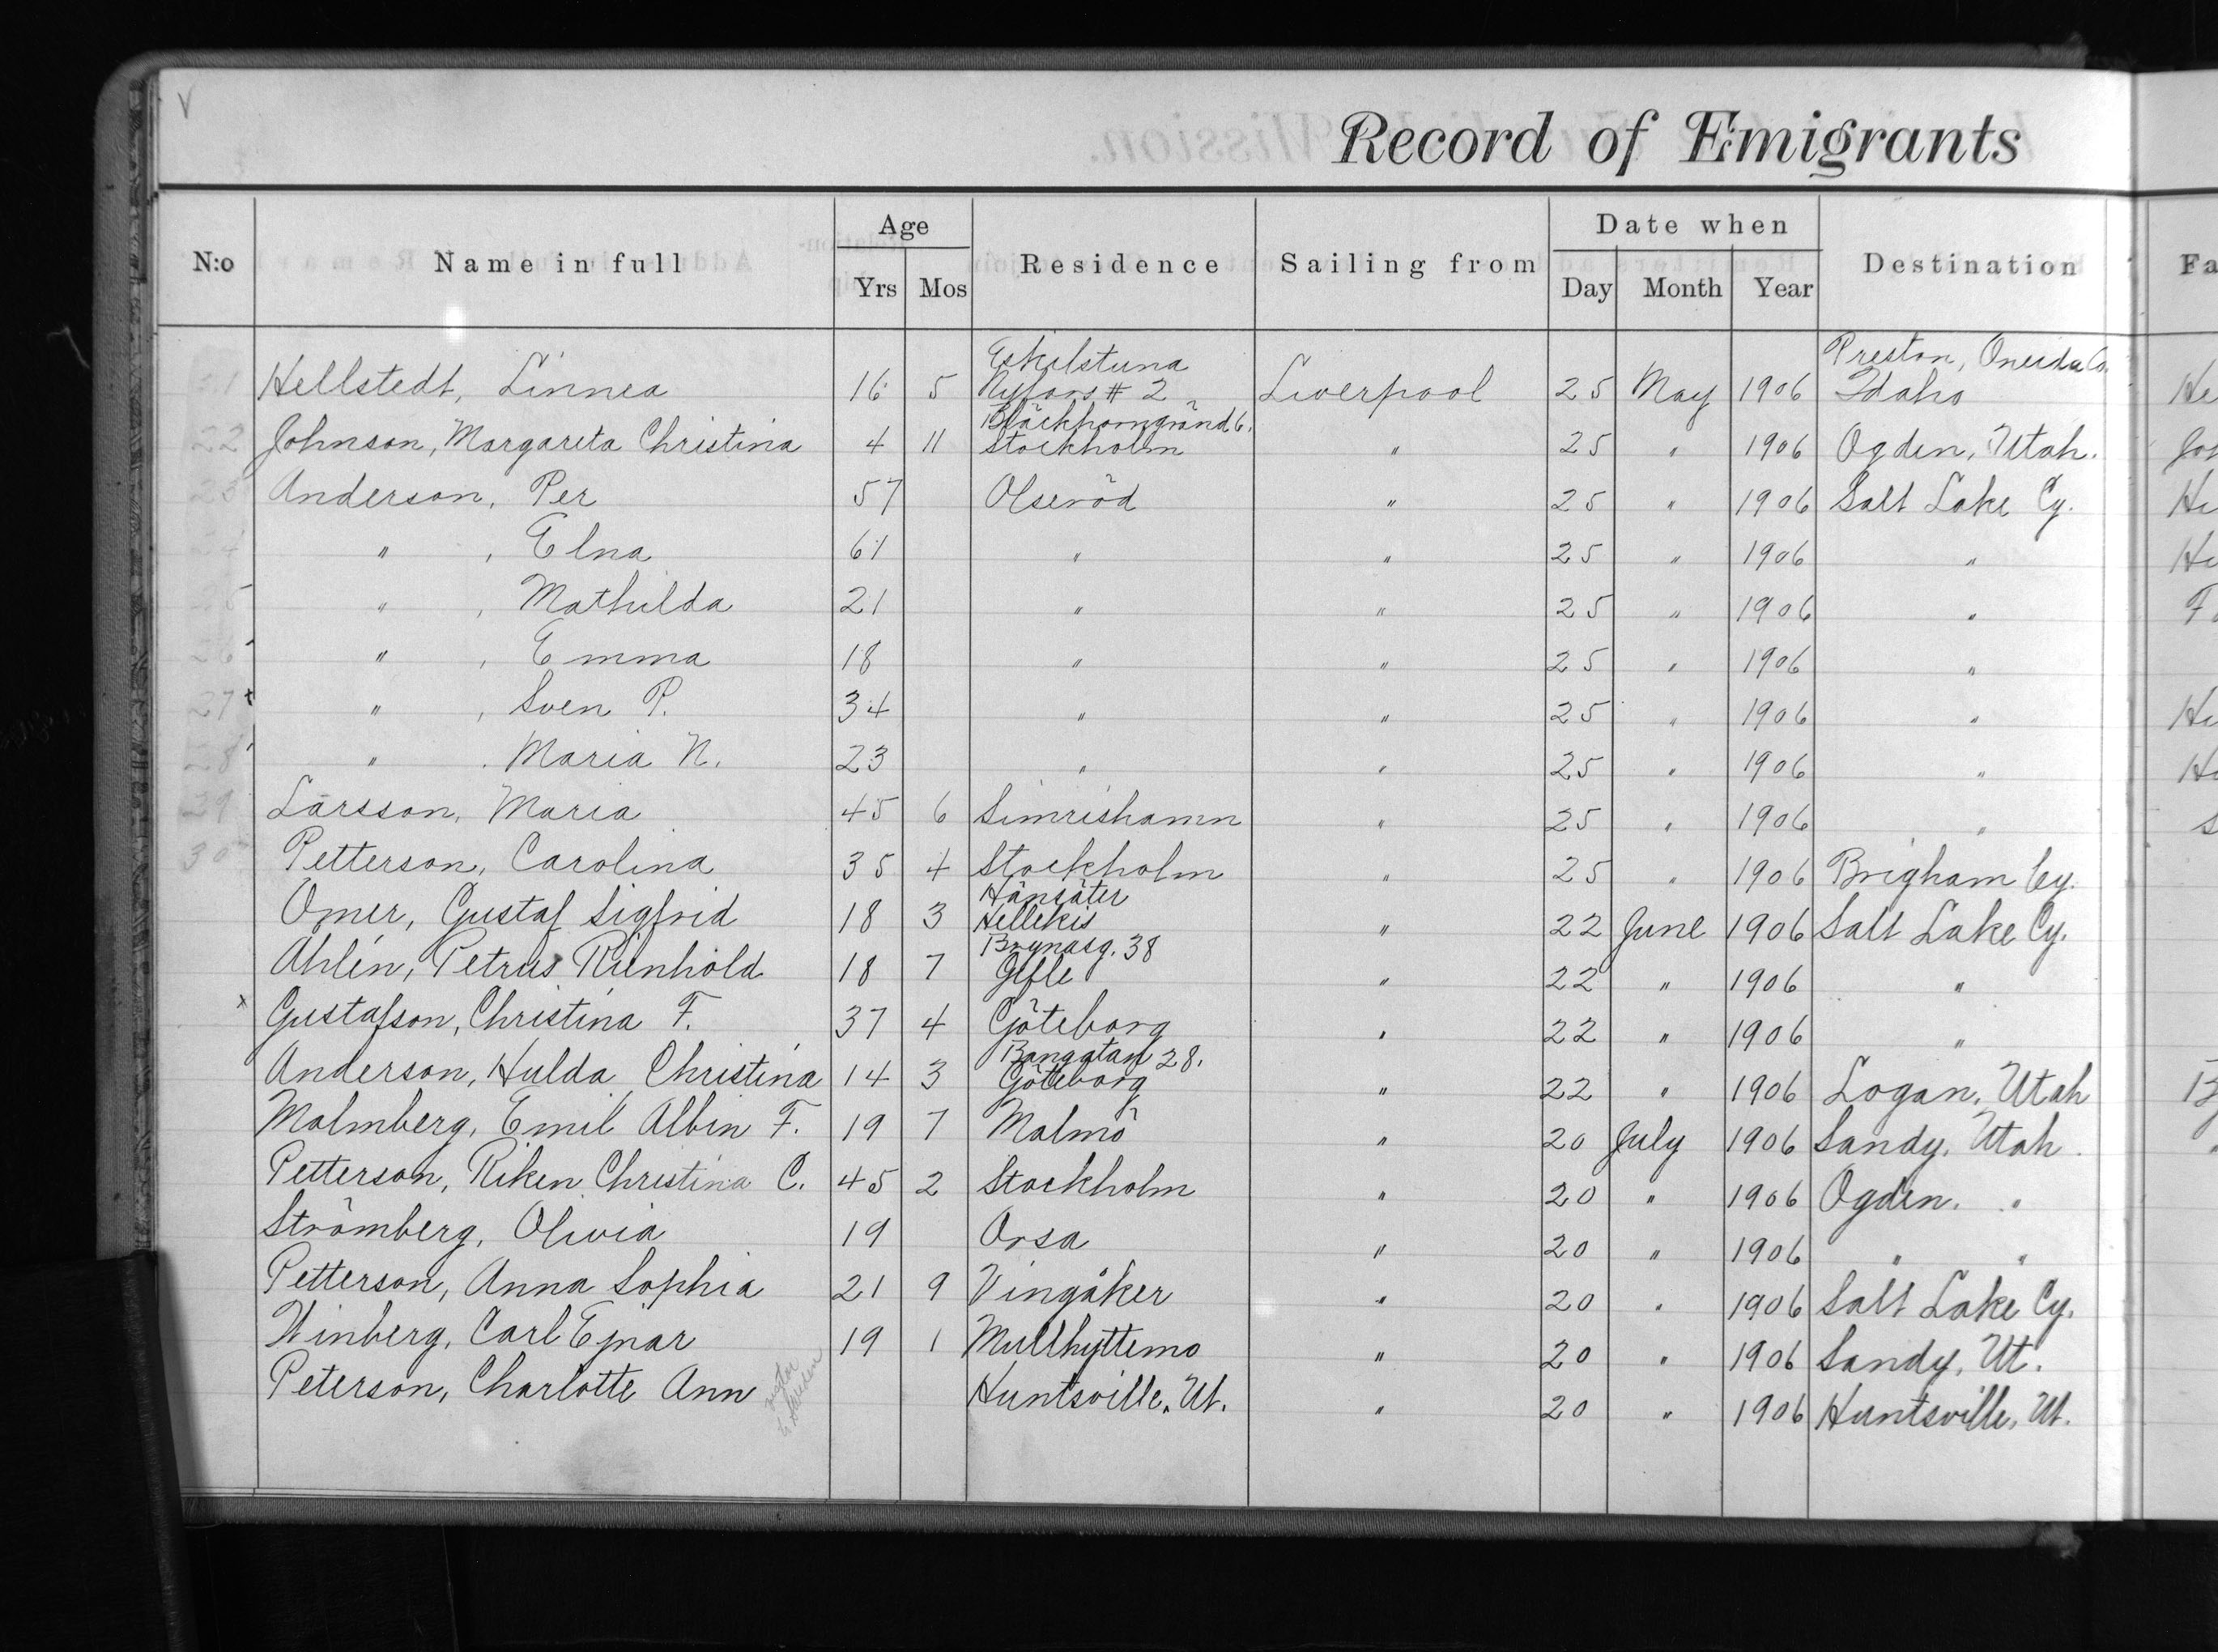 V
Record of Emigrants
N:o Name in full Age Yrs Mos Residence Sailing from Date when Day Month Year Destination Fa
Eskilstuna Preston, Oneida Co.
21 Hellstedt, Linnea 16 5 Nyfors # 2 Liverpool 25 May 1906 Idaho He
Bläckhorngränd 6.
22 Johnson, Margareta Christina 4 11 Stockholm " 25 " 1906 Ogden, Utah. Joh
23 Anderson, Per 57 Olseröd " 25 " 1906 Salt Lake Cy. He
24 " , Elna 61 " " 25 " 1906 " He
25 " , Mathilda 21 " " 25 " 1906 " F
26 " , Emma 18 " " 25 " 1906 "
27 " , Sven P. 34 " " 25 " 1906 " He
28 " , Maria N. 23 " " 25 " 1906 " He
29 Larsson, Maria 45 6 Simrishamn " 25 " 1906 " S
30 Petterson, Carolina 35 4 Stockholm " 25 " 1906 Brigham Cy.
Hänsäter
Omer, Gustaf Sigfrid 18 3 Hellekis " 22 June 1906 Salt Lake Cy.
Brynasg. 38
Ahlin, Petrus Rienhold 18 7 Gefle " 22 " 1906 "
x Gustafson, Christina F. 37 4 Göteborg " 22 " 1906 "
Bangatan 28.
Anderson, Hulda Christina 14 3 Göteborg " 22 " 1906 Logan, Utah
Malmberg, Emil Albin F. 19 7 Malmö " 20 July 1906 Sandy, Utah.
Petterson, Riken Christina C. 45 2 Stockholm " 20 " 1906 Ogden, "
Strömberg, Olivia 19 Orsa " 20 " 1906 " "
Petterson, Anna Sophia 21 9 Vingåker " 20 " 1906 Salt Lake Cy.
Winberg, Carl Ejnar 19 1 Mullhyttemo " 20 " 1906 Sandy, Ut.
Peterson, Charlotte Ann Huntsville, Ut. " 20 " 1906 Huntsville, Ut.